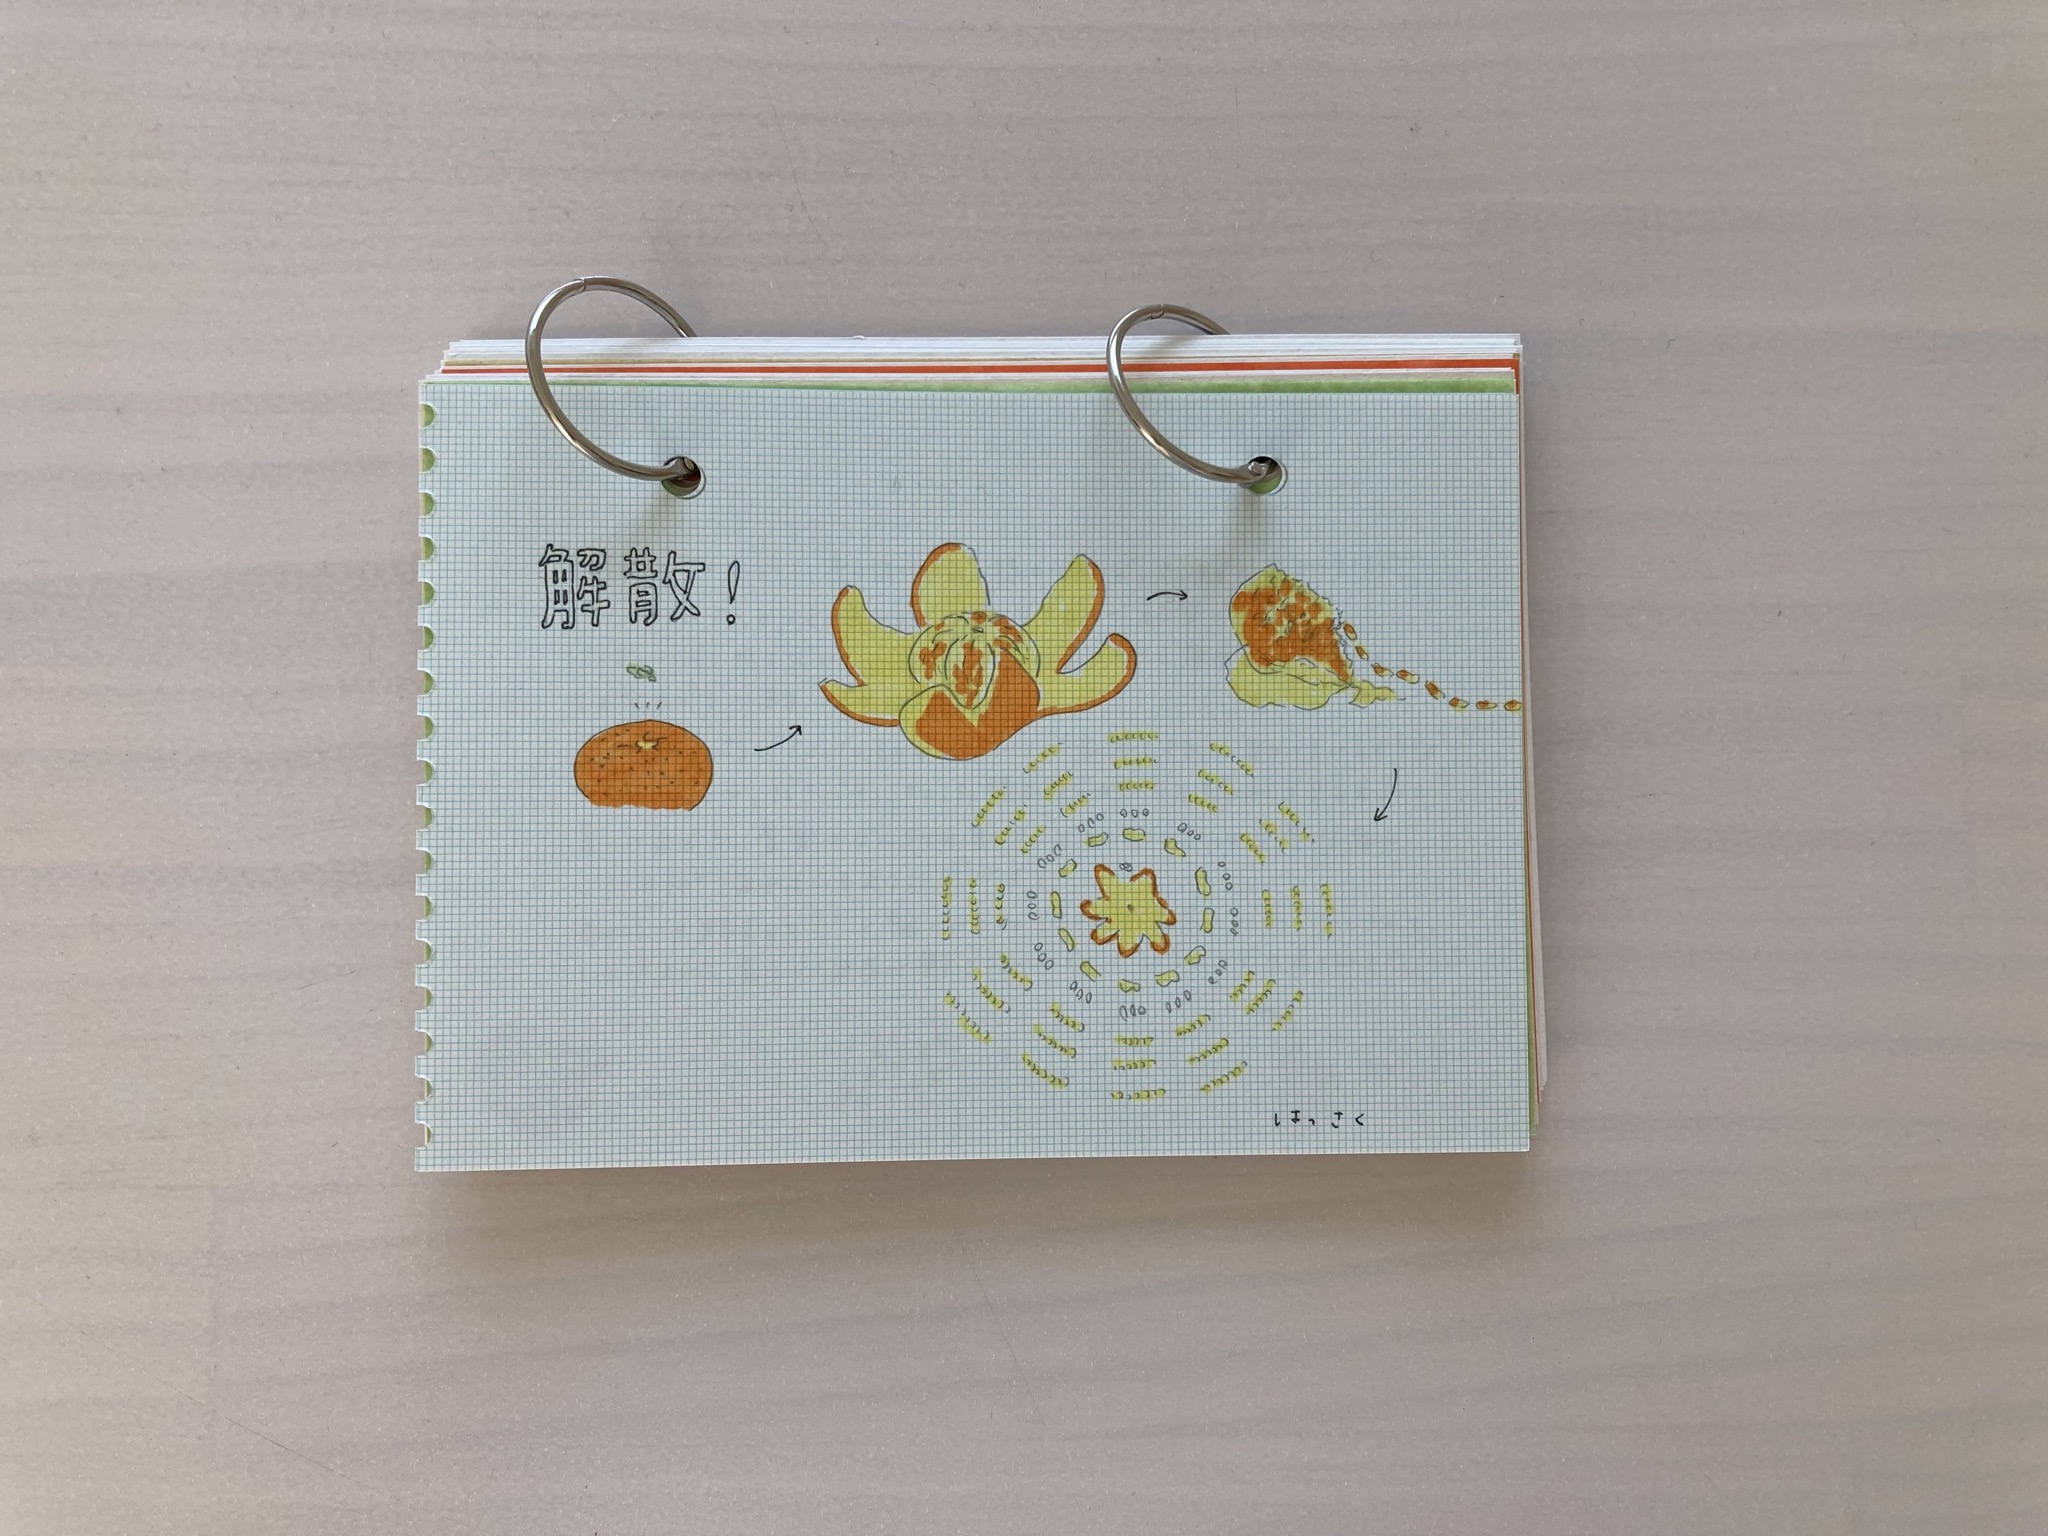 解散!
はっさく